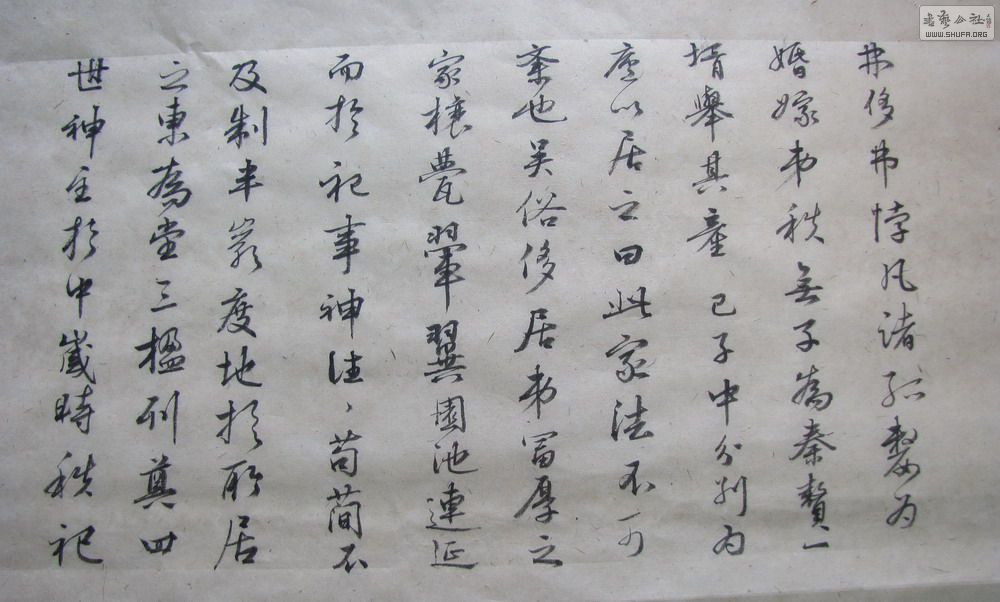 弗侈弗悖凡諸孤嫠为
婚嫁弟秩無子為秦贅一
壻舉其產己子中分别为
廬以居之曰此家法不可
紊也吴俗侈居弟富厚之
家榱甍翬翼園池連延
而於祀事神往〻苟簡不
及制半巖度地於所居
之東為堂三楹列奠四
世神主於中歲時秩祀
書藝公社
WWW.SHUFA.ORG